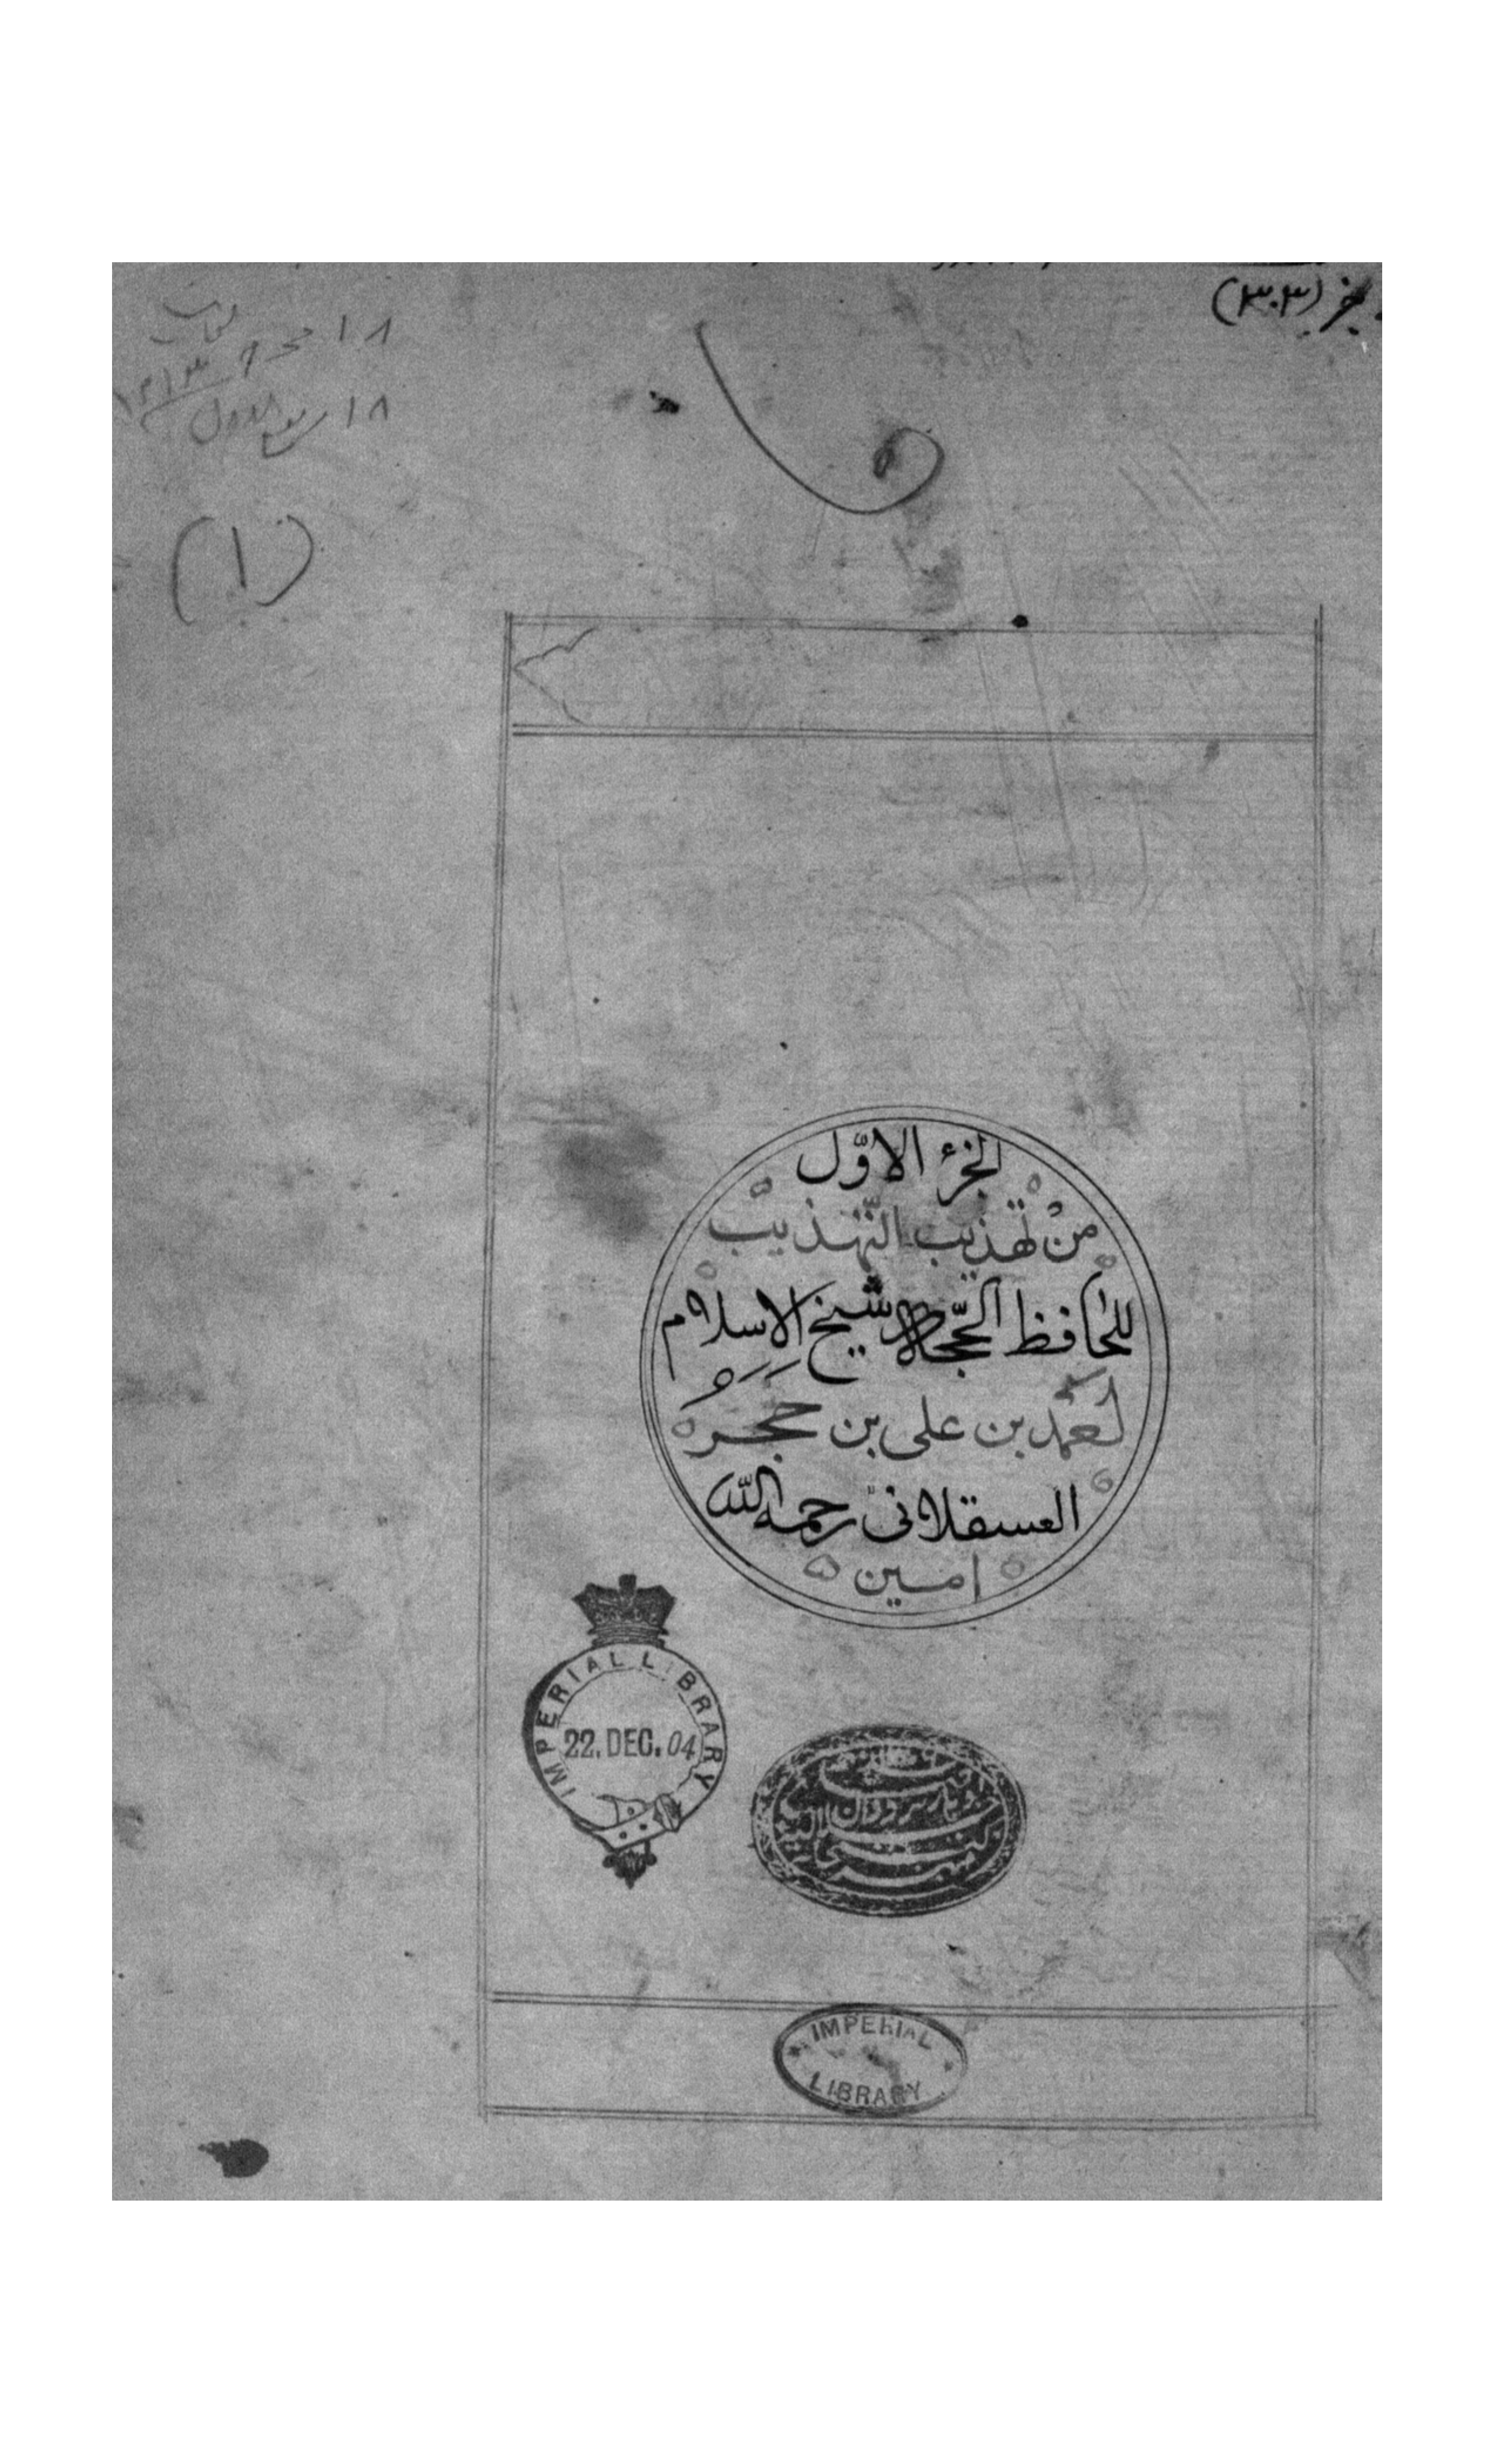 (٣٠٣)
١٨
١٨ ربيع الاول
(١)
الجزء الاوّل
من تهذيب التّهذيب
للحافظ الحجّة شيخ الاسلام
احمد بن على بن حجر
العسقلانىّ رحمه اللّه
امين
IMPERIAL LIBRARY
22. DEC. 04
IMPERIAL
LIBRARY